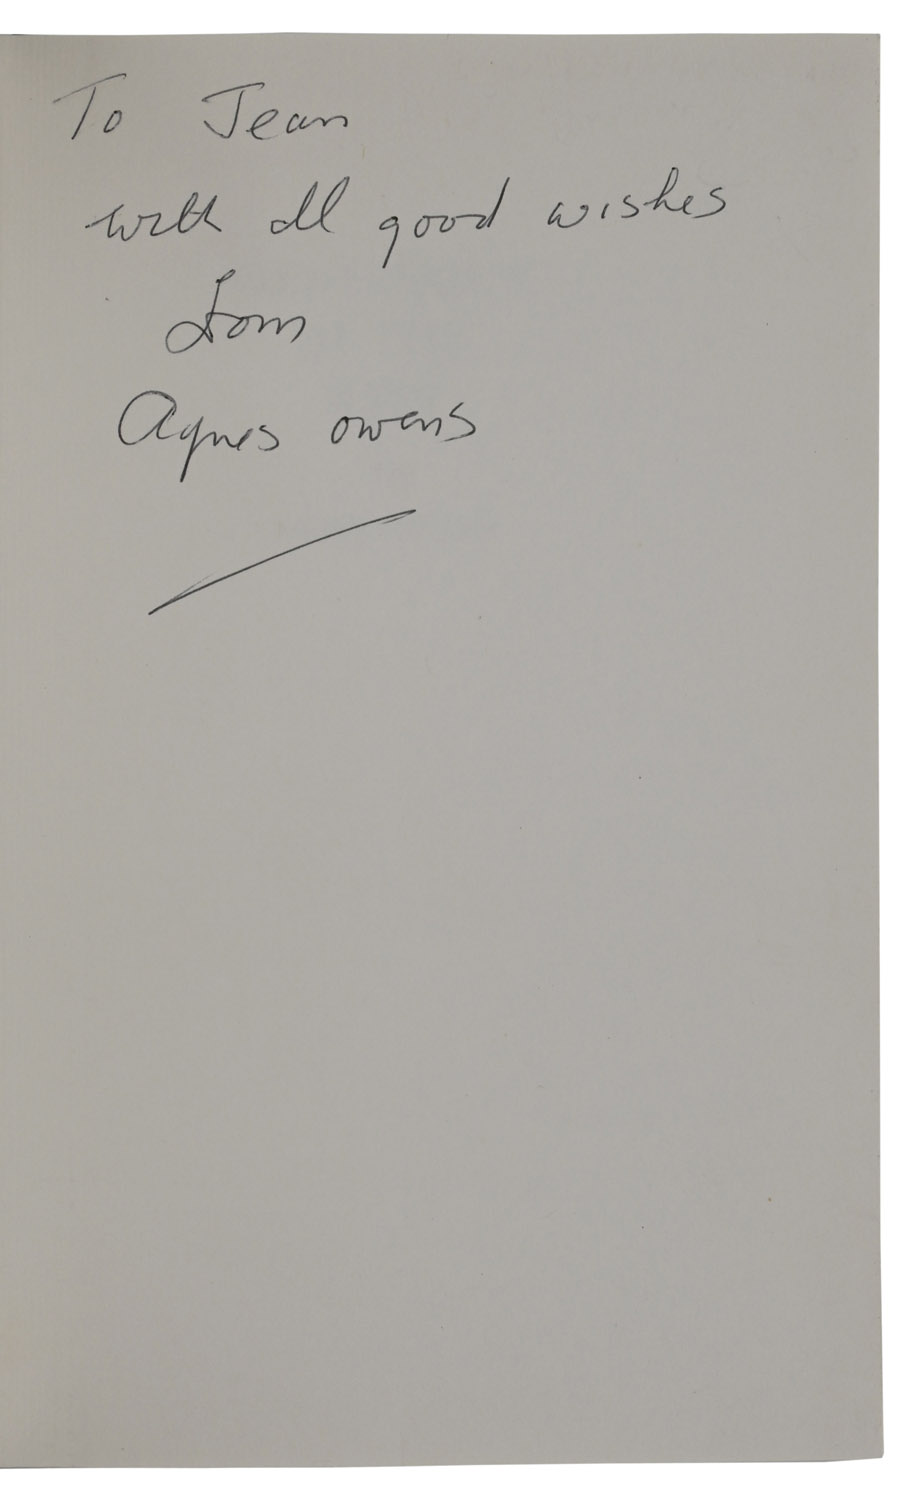 To Jean
with all good wishes
from
Agnes owens